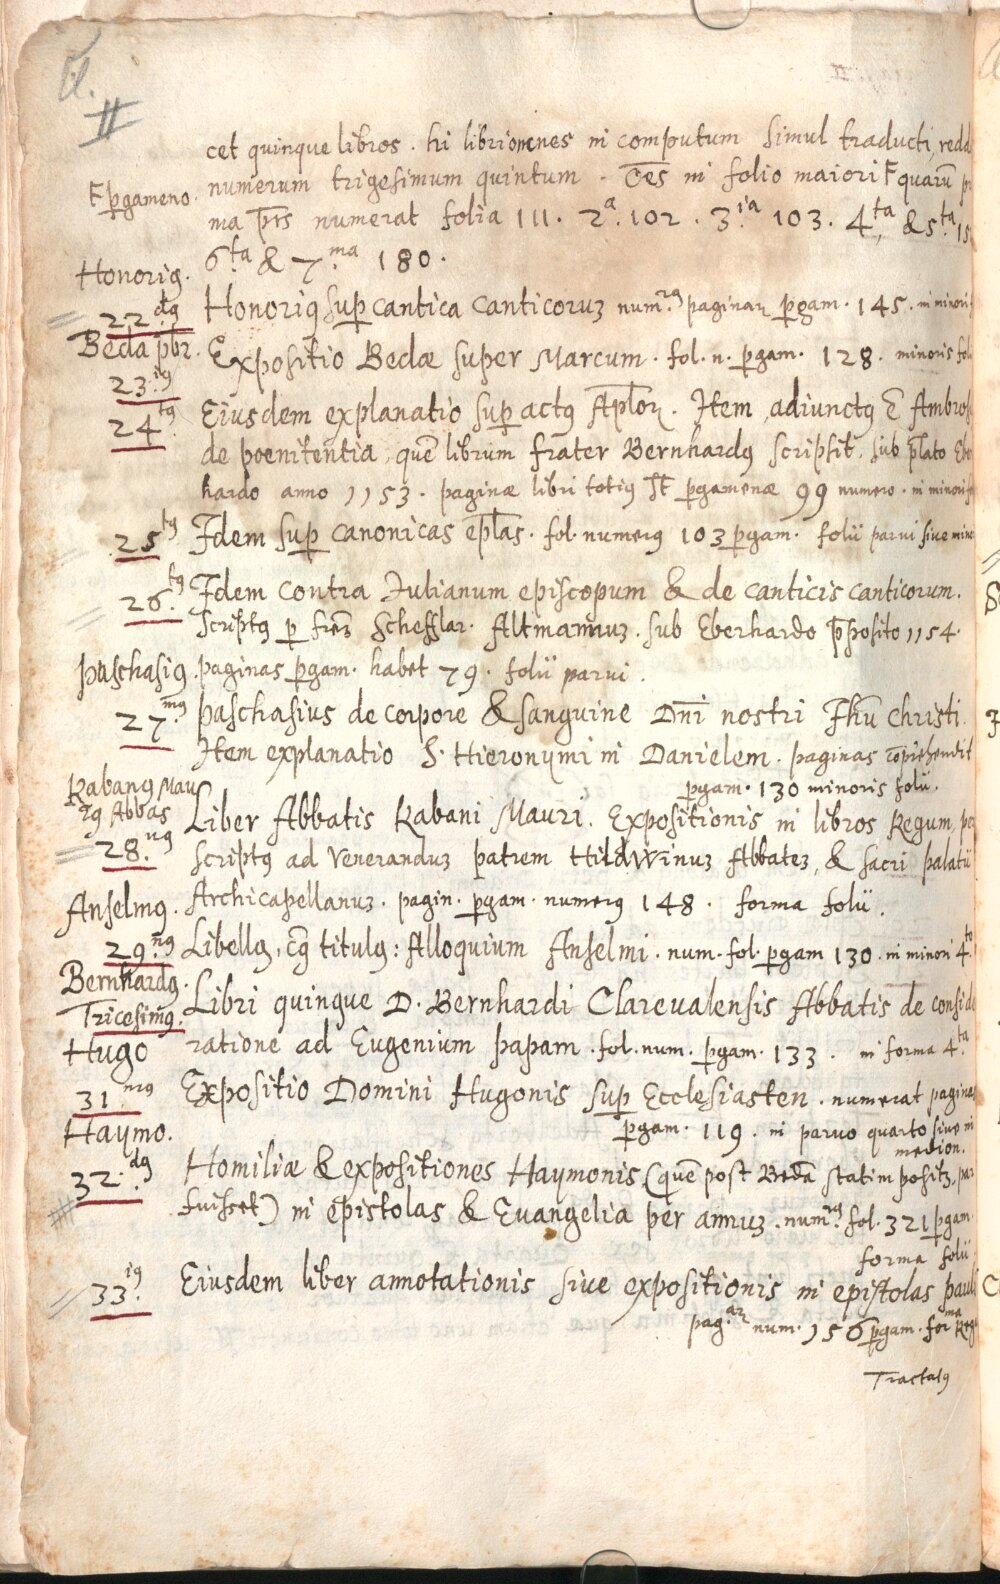 II
cet quinque libros. hi libri omnes in computum simul traducti, redd
F p̱gameno. numerum trigesimum quintum. Ōēs in folio maiori F quarū
ma p̄rs numerat folia 111. 2.ᵃ 102. 3.ⁱᵃ 103. 4.ᵗᵃ & 5.ᵗᵃ
6.ᵗᵃ & 7.ᵐᵃ 180.
Honoriꝰ.
22.ᵈꝰ Honoriꝰ sup̱ cantica canticoruꝫ num.ʳꝰ paginaꝝ p̱gam. 145. in minori
Beda p̄br.
23.ⁱꝰ Expositio Bedæ super Marcum. fol. n. p̱gam. 128. minoris
24.ᵗꝰ Eiusdem explanatio sup̱ actꝰ Ap̄loꝝ. Item adiunctꝰ ē
de poenitentia, quē librum frater Bernhardꝰ scripsit. sub p̄lato
hardo anno 1153. paginæ libri totiꝰ st̄ p̱gamenæ 99 numero. in
25.ᵗꝰ Idem sup̱ canonicas ep̄las. fol. numerꝰ 103 p̱gam. folii parui siue
26.ᵗꝰ Idem contra Iulianum episcopum & de canticis canticorum.
Scriptꝰ p̱ frēꝫ Schefflar. Altmannuꝫ. sub Eberhardo p̄posito 1154.
Paschasiꝰ. paginas p̱gam. habet 79. folii parui.
27.ᵐꝰ Paschasius de corpore & sanguine Dn̄i nostri Ih̄u Christi.
Item explanatio S. Hieronymi in Danielem. paginas cōprehendit
p̱gam. 130 minoris folii.
Rabanꝰ Mau
rꝰ Abbas
28.ᵘꝰ Liber Abbatis Rabani Mauri. Expositionis in libros Regum,
scriptꝰ ad Veneranduꝫ patrem Hildwinuꝫ Abbateꝫ, & sacri palatii
Archicapellanuꝫ. pagin. p̱gam. numerꝰ 148. forma folii.
Anselmꝰ.
29.ⁿꝰ Libellꝰ, cꝰ titulꝰ: Alloquium Anselmi. num. fol. p̱gam 130. in minori 4.ᵗᵒ
Bernhardꝰ.
Tricesimꝰ. Libri quinque D. Bernhardi Clareualensis Abbatis de
ratione ad Eugenium papam. fol. num. p̱gam. 133. in forma 4.ᵗᵃ
Hugo
31.ᵐꝰ Expositio Domini Hugonis sup̱ Ecclesiasten. numerat
p̱gam. 119. in paruo quarto siue in
mediocri.
Haymo.
32.ᵈꝰ Homiliæ & expositiones Haymonis (quē post Bedā statim
fuisset) in epistolas & Euangelia per annuꝫ. num.ʳꝰ fol. 321 p̱gam.
forma folii
33.ⁱꝰ Eiusdem liber annotationis siue expositionis in epistolas
pag.ᵃꝝ num. 156 p̱gam. for.ᵐᵃ
Tractatꝰ